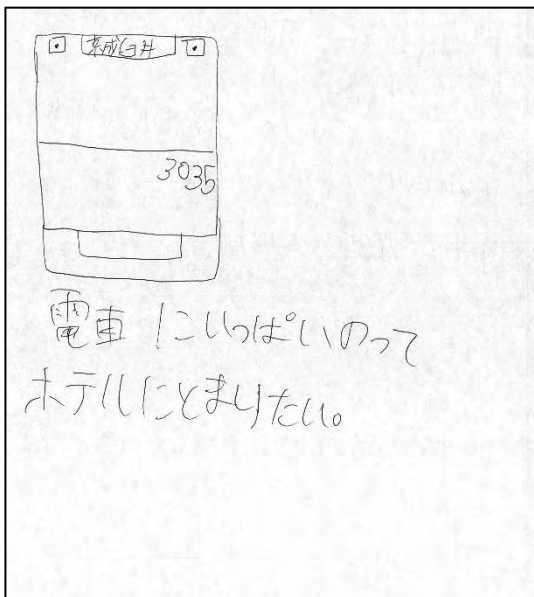 京成臼井
3035
電車にいっぱいのって
ホテルにとまりたい。